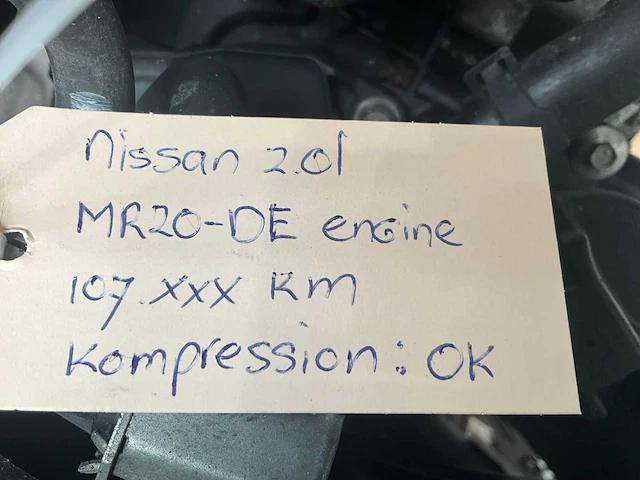 Nissan 2.0l
MR20-DE engine
107.xxx KM
Kompression: OK